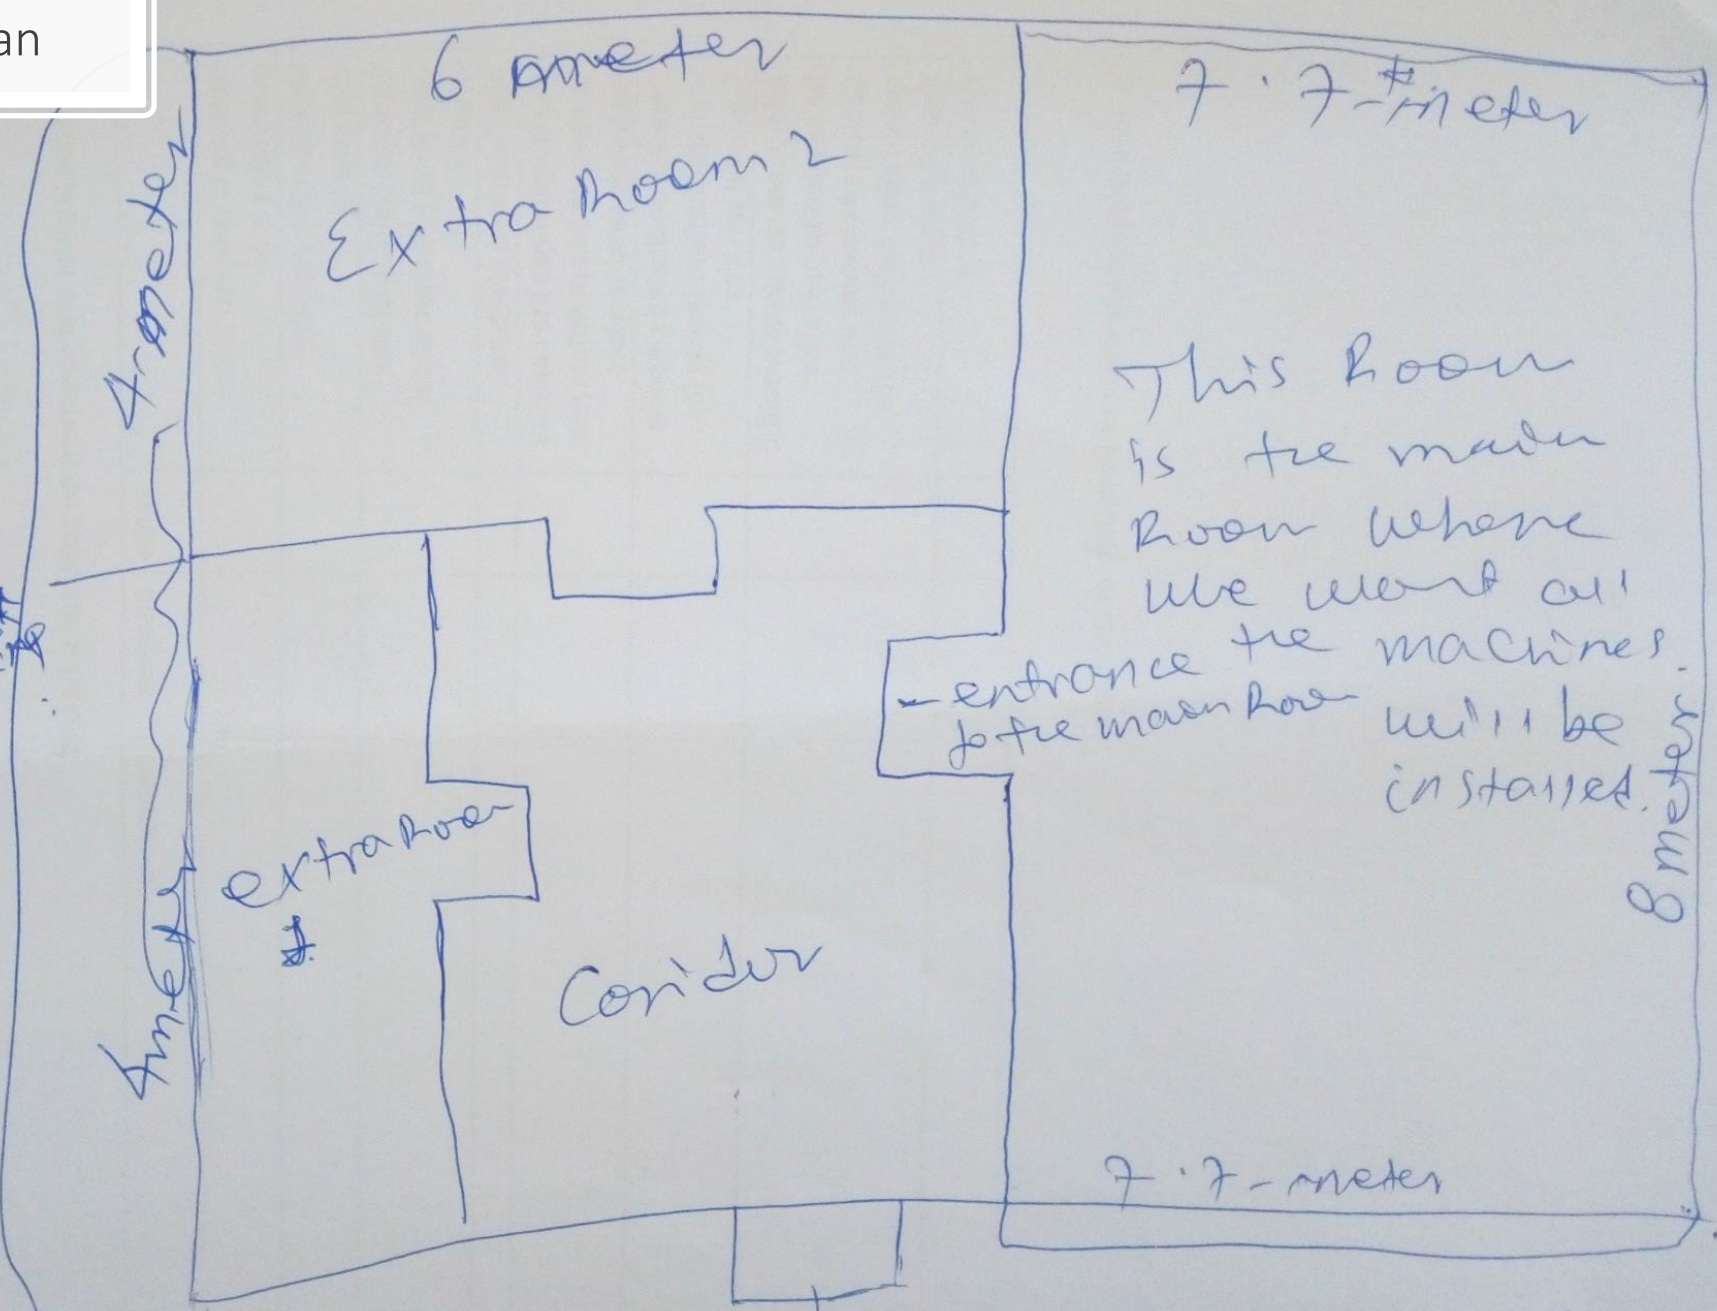 an
6 meter
7.7-meter
Extra Room 2
4 meter
This Room
is the main
Room where
we want all
the machines
will be
installed.
- entrance
to the main Room
8 meter
extra Room
1.
Coridor
4 meter
7.7-meter